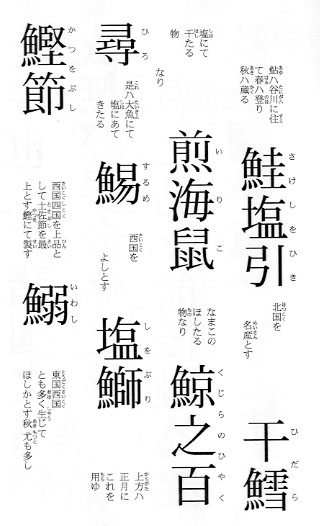 鮎ハ谷川に住
て春ハ登り
秋ハ蔵る
鮭塩引
さけしをひき
北国を
名産とす
干鱈
ひだら
塩にて
干たる
物
煎海鼠
いりこ
なまこの
ほしたる
物なり
鯨之百
くじらのひやく
尋
ひろ
なり
是ハ大魚にて
塩にあて
きたる
鯣
するめ
西国を
よしとす
塩鰤
しをぶり
上方ハ
正月に
これを
用ゆ
鰹節
かつをぶし
西国四国を上品と
して土佐節を最
上とす鰹にて製す
鰯
いわし
東国西国
とも多く生じて
ほしかとす秋尤も多し